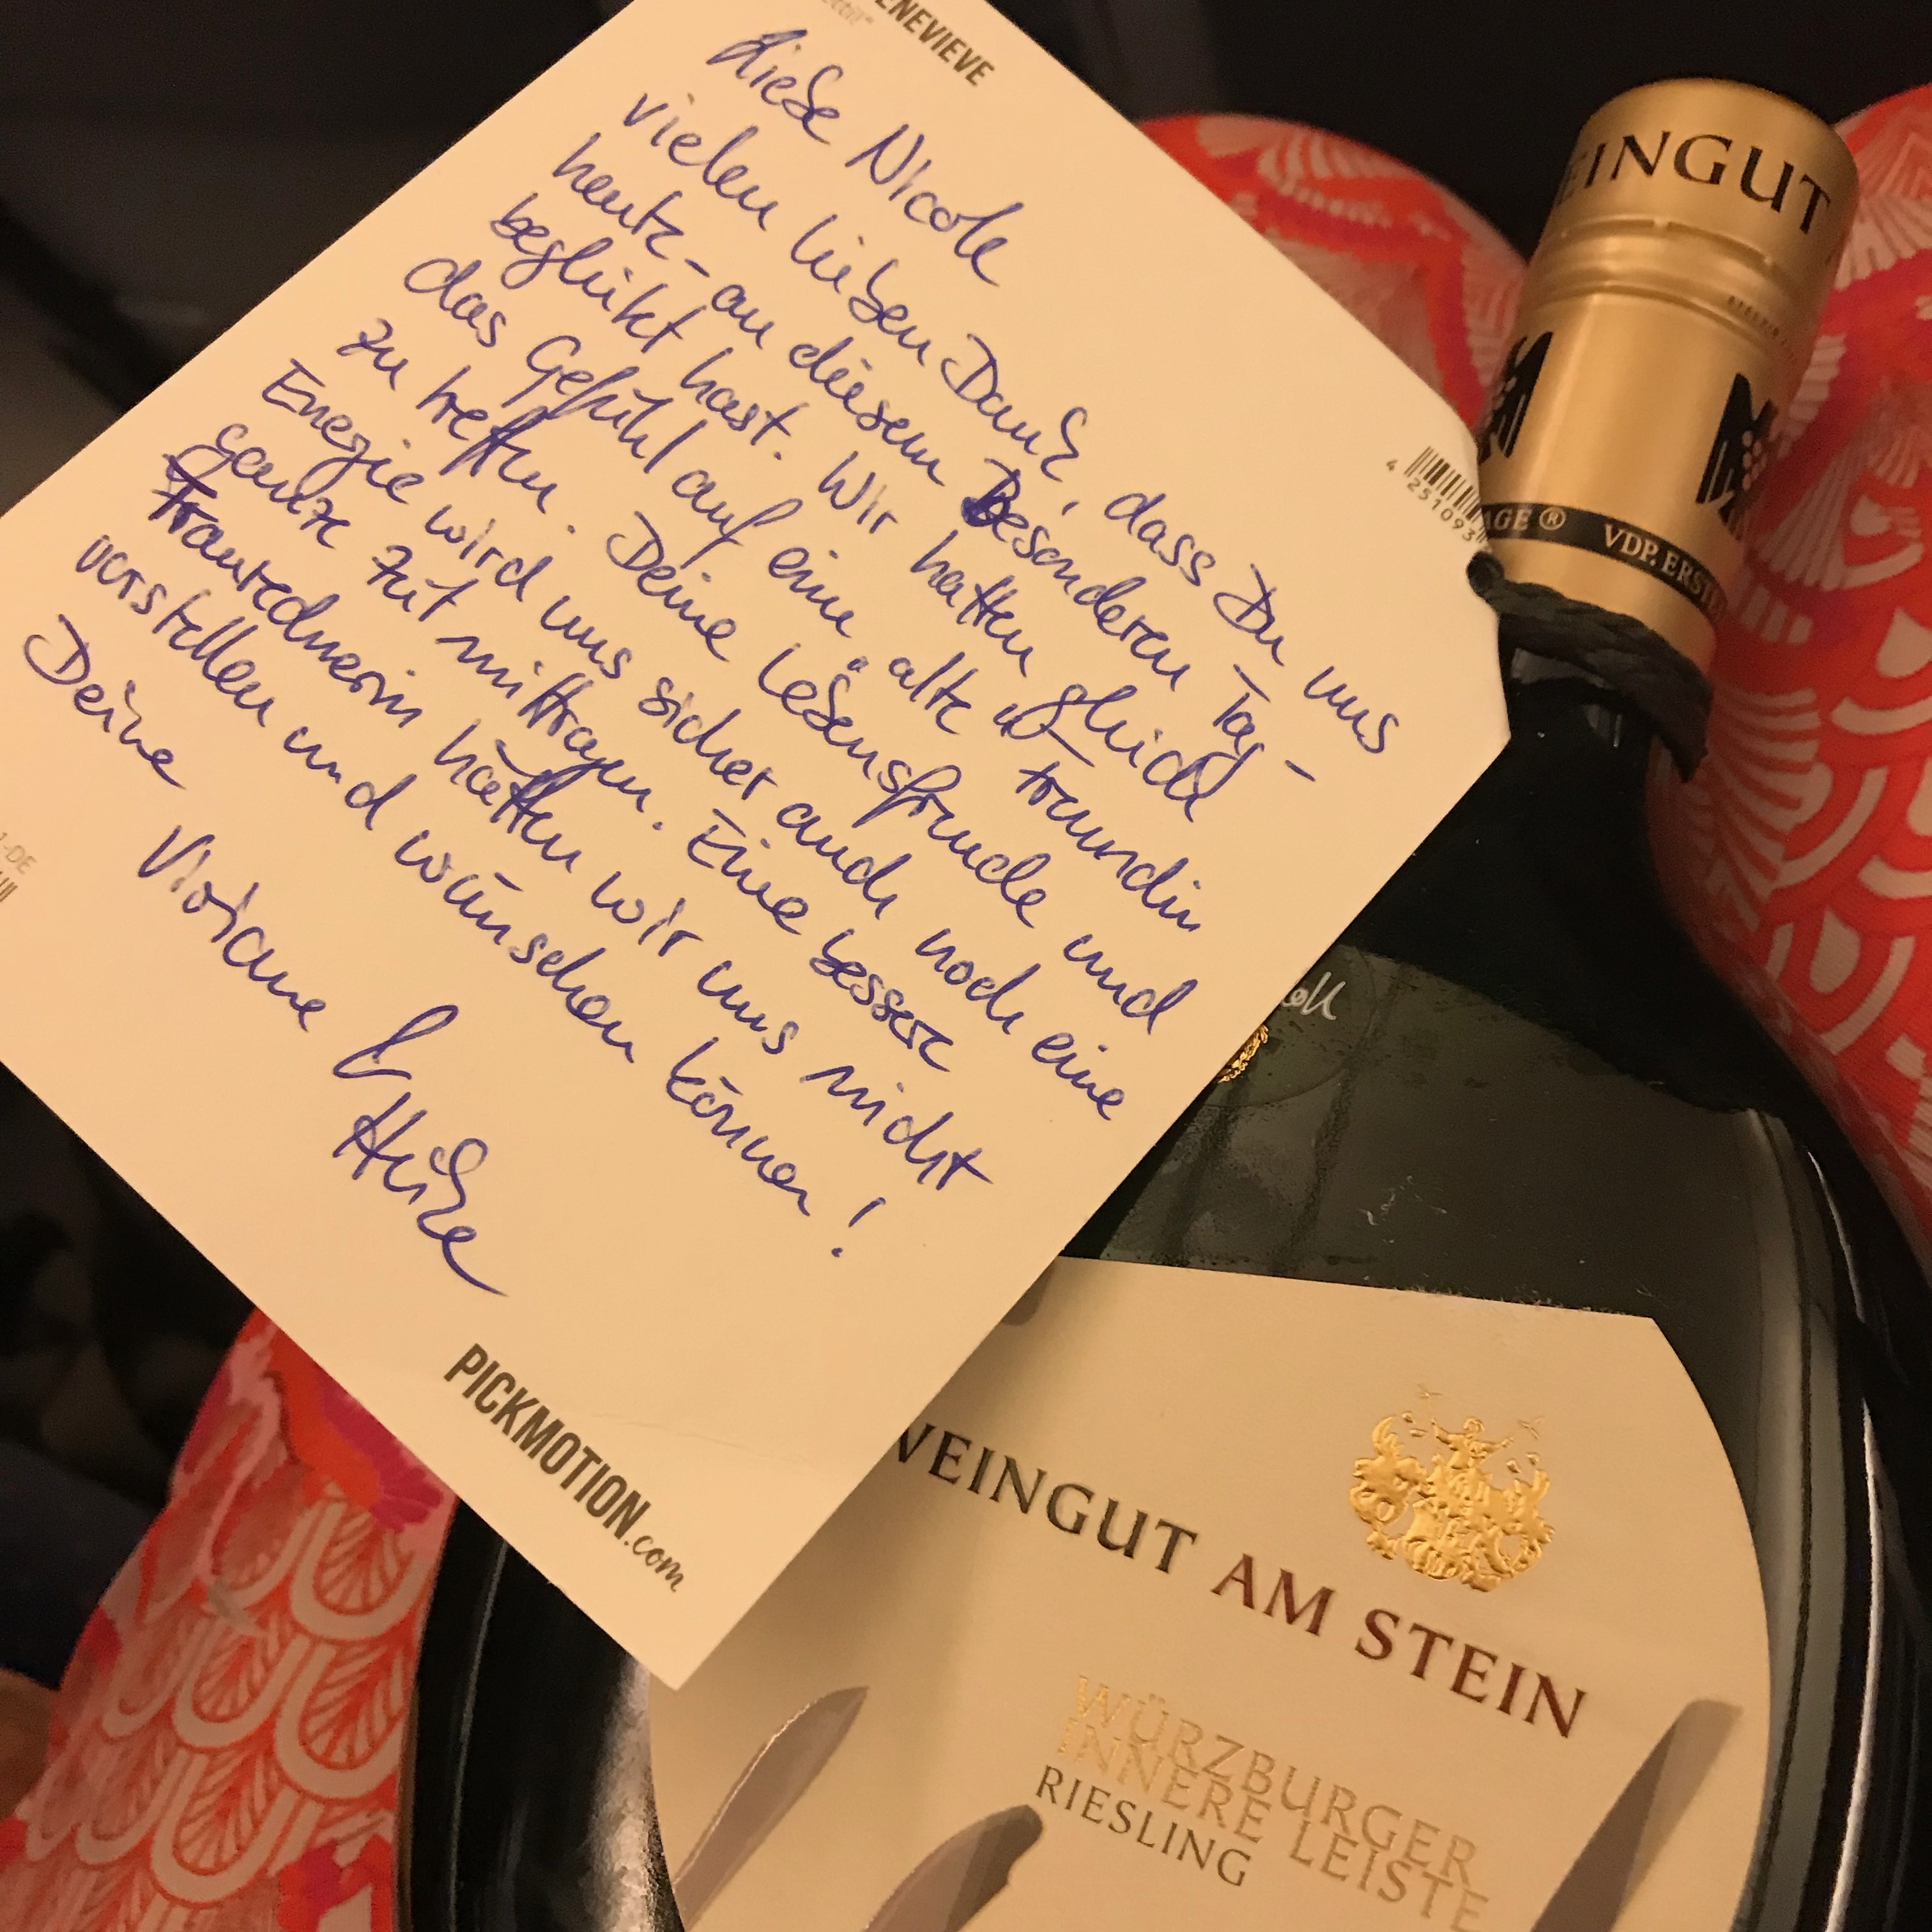 ENEVIEVE
Liebe Nicole
vielen lieben Dank, dass Du uns
heute - an diesem Besonderen Tag -
beglükt hast. Wir hatten gleich
das Gefühl auf eine "alte" Freundin
zu treffen. Deine Lebensfreude und
Energie wird uns sicher auch noch eine
ganze Zeit mittragen. Eine bessere
Traurednerin hätten wir uns nicht
vorstellen und wünschen können!
Deine
Viviane &
Heike
PICKMOTION.com
4 251093
-DE
EINGUT
AGE ® VDP. ERST
WEINGUT AM STEIN
WÜRZBURGER
INNERE LEISTE
RIESLING